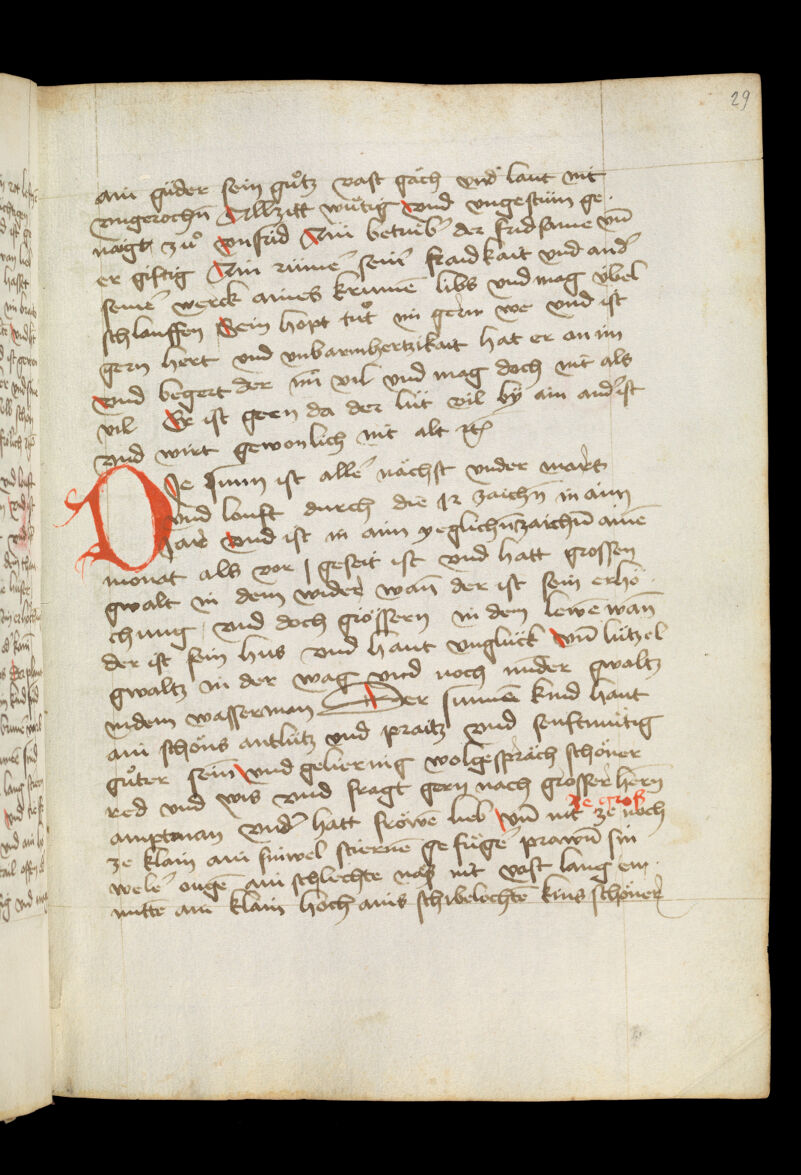 29
ain güder sein guͦtz vast gäch vnd laut nit
vngerochn̄ Allzitt wuͤtig vnd vngestüm ge
naigt zuͦ vnfrid Ain betruͤbē der fridsame vn̄
er giftig Ain rümē seinē frandkait vnd andē
seinē werck aines krumē libs vnd mag v̈bel
schlauffen Sein hopt tuͦt im gern we vnd ist
gern hert vnd vnbarmhertzikait hat er an im
vnd begert der im̄ vil vnd mag doch nit als
vil Er ist gern da der lüt vil by ain andē ist
vnd wirt gewonlich nit alt
Die sunn ist allē nächst vnder marts
vnd louft durch die 12 zaichn̄ in aim
iar vnd ist in aim yeglichn̄ zaichn̄ ainē
monat als vor geseit ist vnd hatt grossen
gwalt in dem wider wan̄ der ist sein erhö
chung vnd doch grössern in dem lewē wan̄
der ist sein hus vnd haut vnglück vn̄ lützel
gwaltz in der wag vnd noch minder gwaltz
in dem wasserman Der sunnen kind haut
ain schöns antlütz vnd praitz vnd senftmütig
guͦter sein̄ vnd geliernig wolgespräch schöner
red vnd wis vnd fragt gern nach grosser hern̄
amptman vndē hatt fröwē lieb vn̄ nit ze groß noch
ze klain ain sinwel stirnē gefügē prawn̄ sin
welē ougē ain schlechte nas nit vast lang en
mitte ain klain hoch ains schibelochtē kins schöner